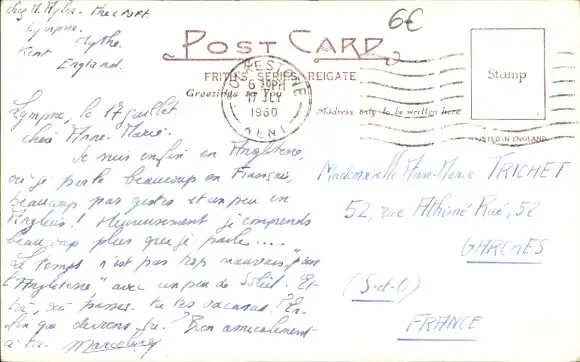 6€
Lympne.
Hythe.
Kent
England.
POST CARD
FRITH'S SERIES REIGATE
Greetings to You
Address only to be written here
Stamp
PRINTED IN ENGLAND
FOLKESTONE
6 30PM
17 JLY
1960
KENT
Lympne, le 17 juillet
chère Anne-Marie.
Je suis enfin en Angleterre,
où je parle beaucoup en Français,
beaucoup par gestes et un peu en
Anglais! Heureusement je comprends
beaucoup plus que je parle.....
Le temps n'est pas trop mauvais, "pour
l'Angleterre", avec un peu de soleil. Et
toi, où passes-tu tes vacances? En-
fin que deviens-tu? Bien amicalement
à toi.
Mademoiselle Anne-Marie TRICHET
52, rue Athimé Rué, 52
GARCHES
(S-et-O)
FRANCE